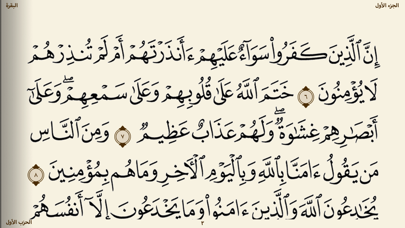 الجزء الأول
البقرة
إِنَّ ٱلَّذِينَ كَفَرُوا۟ سَوَآءٌ عَلَيْهِمْ ءَأَنذَرْتَهُمْ أَمْ لَمْ تُنذِرْهُمْ
لَا يُؤْمِنُونَ ٦ خَتَمَ ٱللَّهُ عَلَىٰ قُلُوبِهِمْ وَعَلَىٰ سَمْعِهِمْ ۖ وَعَلَىٰٓ
أَبْصَـٰرِهِمْ غِشَـٰوَةٌ ۖ وَلَهُمْ عَذَابٌ عَظِيمٌ ٧ وَمِنَ ٱلنَّاسِ
مَن يَقُولُ ءَامَنَّا بِٱللَّهِ وَبِٱلْيَوْمِ ٱلْـَٔاخِرِ وَمَا هُم بِمُؤْمِنِينَ ٨
يُخَـٰدِعُونَ ٱللَّهَ وَٱلَّذِينَ ءَامَنُوا۟ وَمَا يَخْدَعُونَ إِلَّآ أَنفُسَهُمْ
٢
الحزب الأول